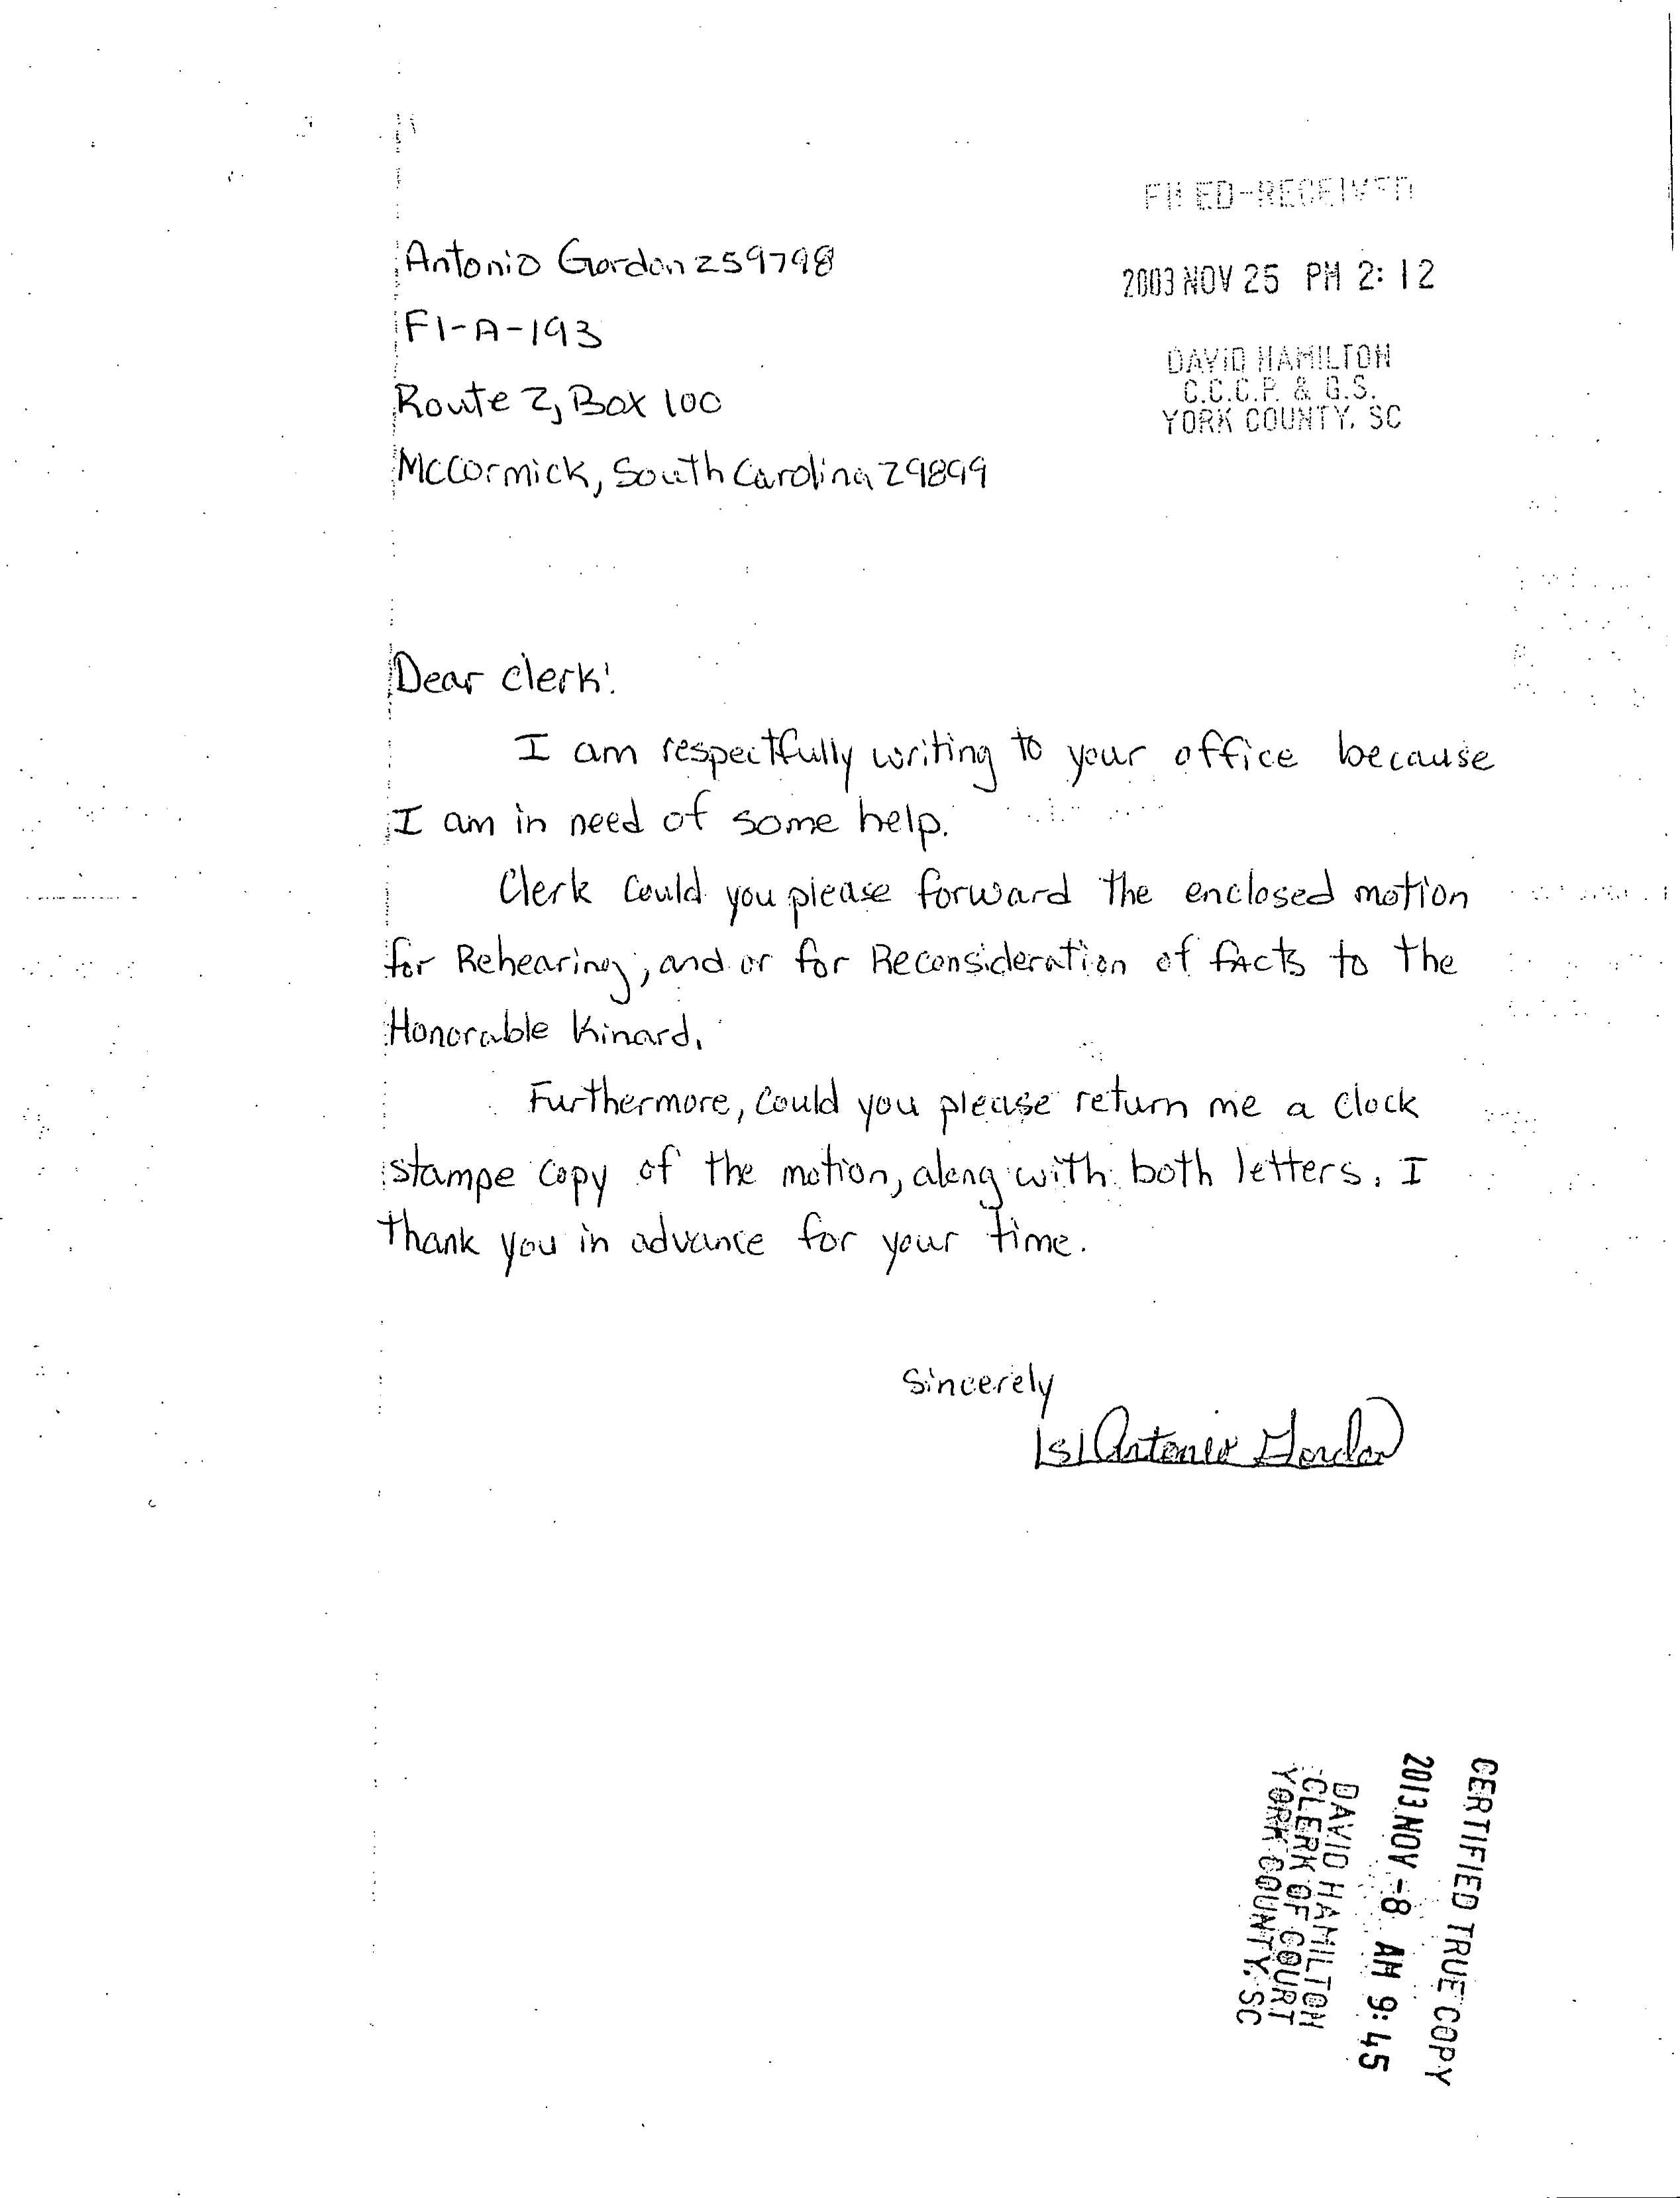 FILED-RECEIVED
2003 NOV 25 PM 2:12
DAVID HAMILTON
C.C.C.P. & G.S.
YORK COUNTY, SC
Antonio Gordon 259798
F1-A-193
Route 2, Box 100
McCormick, South Carolina 29899
Dear clerk:
I am respectfully writing to your office because
I am in need of some help.
Clerk could you please forward the enclosed motion
for Rehearing, and or for Reconsideration of fActs to the
Honorable Kinard.
Furthermore, could you please return me a clock
stampe copy of the motion, along with both letters. I
thank you in advance for your time.
Sincerely
/s/ Antonio Gordon
CERTIFIED TRUE COPY
2013 NOV -8 AM 9:45
DAVID HAMILTON
CLERK OF COURT
YORK COUNTY, SC